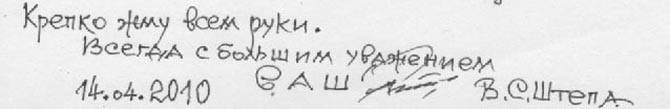 Крепко жму всем руки.
Всегда с большим уважением
14.04.2010 ВАШ В.С.Штепа